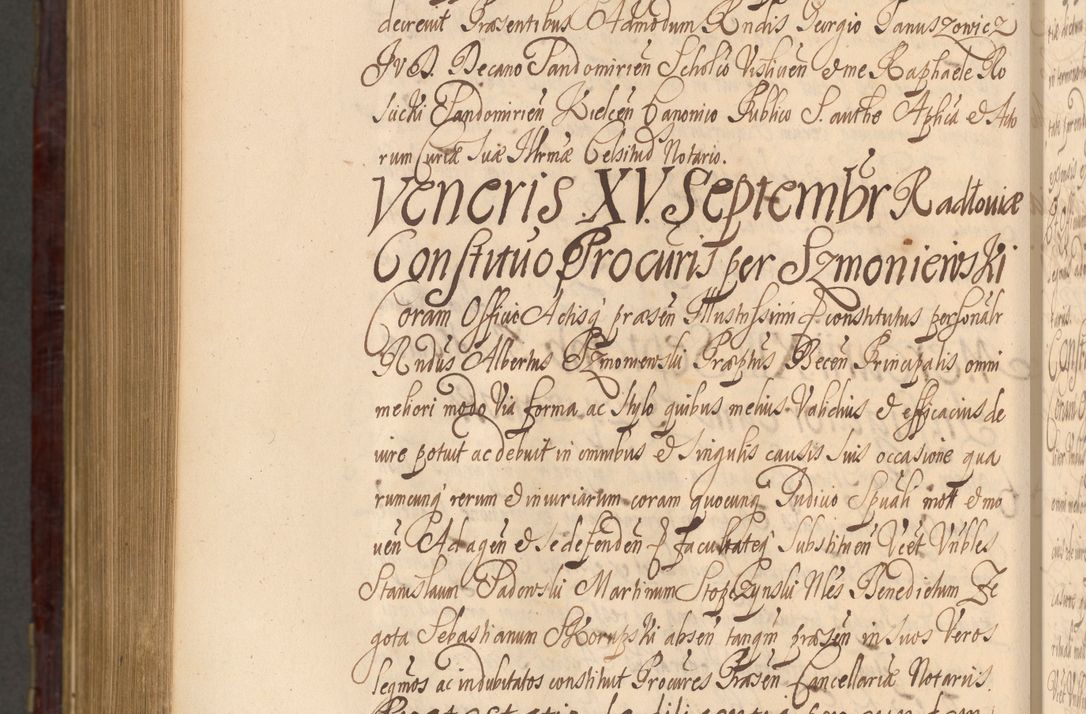 decrevit Præsentibus Admodum Rndis Georgio Januszowicz
JVD. Decano Sandomirien̄ Scholco Vislicien̄ et me Raphaele Ro
sucki Sandomirien̄ Kielcen̄ Canonico Publico S. authe Aplica et Acto
rum Curiæ Suæ Illrmæ Celsitud Notario.
Veneris XV. Septembr Radłoviæ
Constituo Procuris per Szmoniewski
Coram Officio Actisq præsen̄ Illustrissimi P constitutus personalr
Rndus Albertus Szmoniewski Præptus Becen̄ Principalis omni
meliori modo Via forma ac stylo quibus melius Validius et efficacius de
iure potuit ac debuit in omnibus et singulis causis suis occasione qua
rumcunq rerum et iniuriarum coram quocunq Judicio Spuali mot et mo
ven̄ Ad agen̄ et se defenden̄ P facultateq substituen̄ Veet Vnbles
Stanislaum Sadowski Martinum Stopczynski Nles Benedictum Ze
gota Sebastianum Skorupski absen̄ tanqm præsen̄ in suos Veros
legmos ac indubitatos constituit Procures Præsen̄ Cancellariæ Notariis.